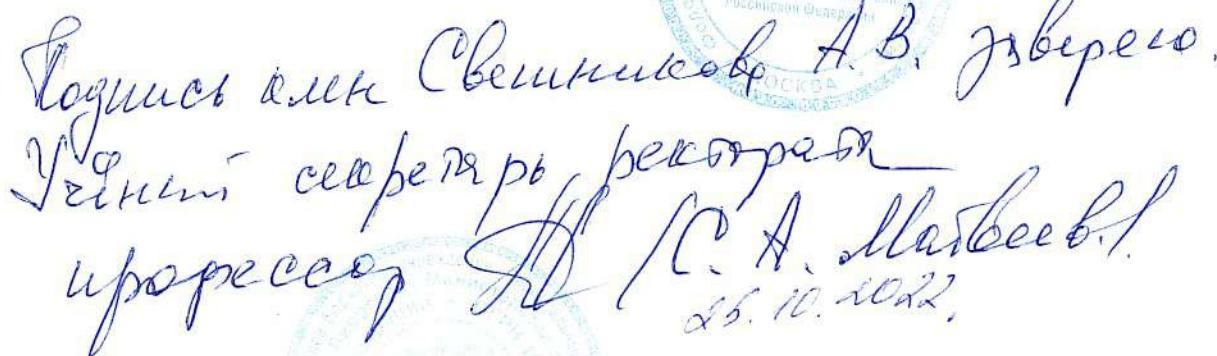 Российской Федерации
МОСКВА
Подпись Свешникова А.В. заверяю.
Учёный секретарь ректората
профессор /С.А. Матвеев./
25.10.2022.